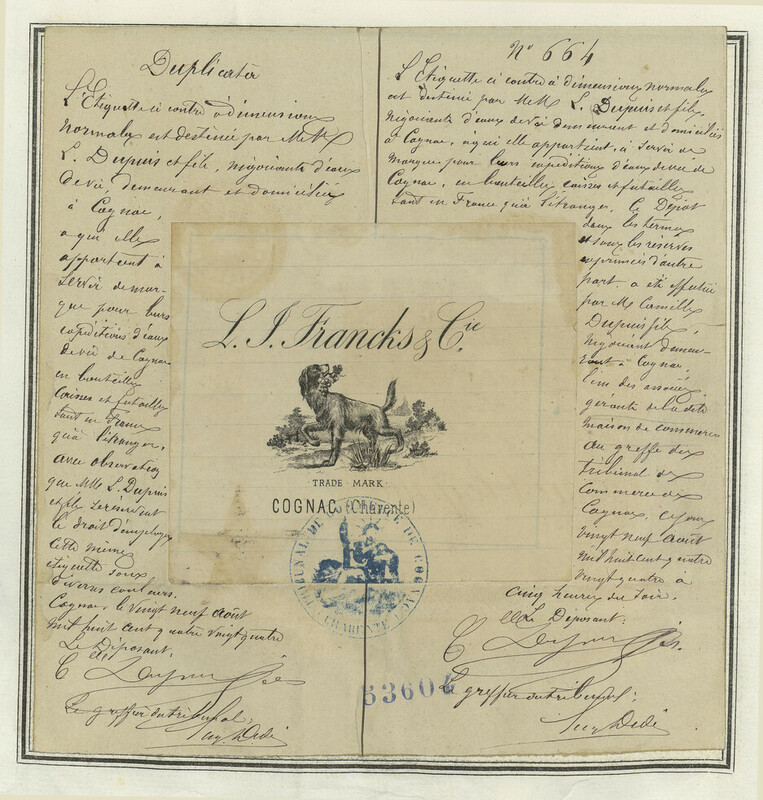 Duplicata
L'Etiquette ci contre à dimensions
normales est destinée par MM
L. Dupuis et fils, négociants d'eaux
de vie, demeurant et domiciliés
à Cognac,
à qui elle
appartient à
servir de mar-
que pour leurs
expéditions d'eaux
de vie de Cognac
en bouteilles
caisses et futailles
tant en France
qu'à l'étranger,
avec observation
que MM L. Dupuis
et fils se réservent
le droit d'employer
cette même
étiquette sous
diverses couleurs.
Cognac, le vingt neuf août
mil huit cent quatre vingt quatre
Le Déposant,
C Dupuis fils
Le greffier du tribunal:
No 664
L'Etiquette ci contre à dimensions normales
est destinée par MM L. Dupuis et fils,
négociants d'eaux de vie demeurant et domiciliés
à Cognac, à qui elle appartient, à servir de
marque pour leurs expéditions d'eaux de vie de
Cognac, en bouteilles caisses et futailles
tant en France qu'à l'étranger. Ce Dépôt
dans les termes
et sous les réserves
exprimées d'autre
part, a été effectué
par M. Camille
Dupuis fils,
négociant demeu-
rant à Cognac,
l'un des associés
gérants de la dite
maison de commerce
au greffe du
tribunal de
Commerce de
Cognac, ce jour
vingt neuf août
mil huit cent quatre
vingt quatre à
cinq heures du soir.
Le Déposant:
C Dupuis fils.
Le greffier du tribunal:
L. J. Francks & Cie
TRADE MARK
COGNAC (Charente)
TRIBUNAL DE COMMERCE DE COGNAC
CHARENTE
53604